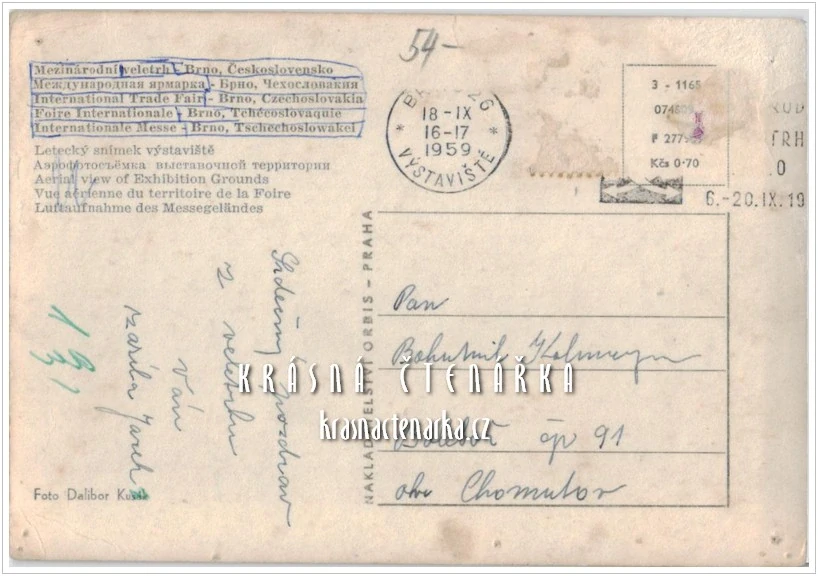 54-
Mezinárodní veletrh - Brno, Československo
Международная ярмарка - Брно, Чехословакия
International Trade Fair - Brno, Czechoslovakia
Foire Internationale - Brno, Tchécoslovaquie
Internationale Messe - Brno, Tschechoslowakei
Letecký snímek výstaviště
Аэрофотосъёмка выставочной территории
Aerial view of Exhibition Grounds
Vue aérienne du territoire de la Foire
Luftaufnahme des Messegeländes
18-IX
16-17
1959
* VÝSTAVIŠTĚ *
3 - 1165
Kčs 0·70
6.-20.IX.19
NAKLADATELSTVÍ ORBIS - PRAHA
Srdečný pozdrav
z veletrhu
Vám
Pan
Bohumil
čp 91
Chomutov
KRÁSNÁ ČTENÁŘKA
krasnactenarka.cz
Foto Dalibor